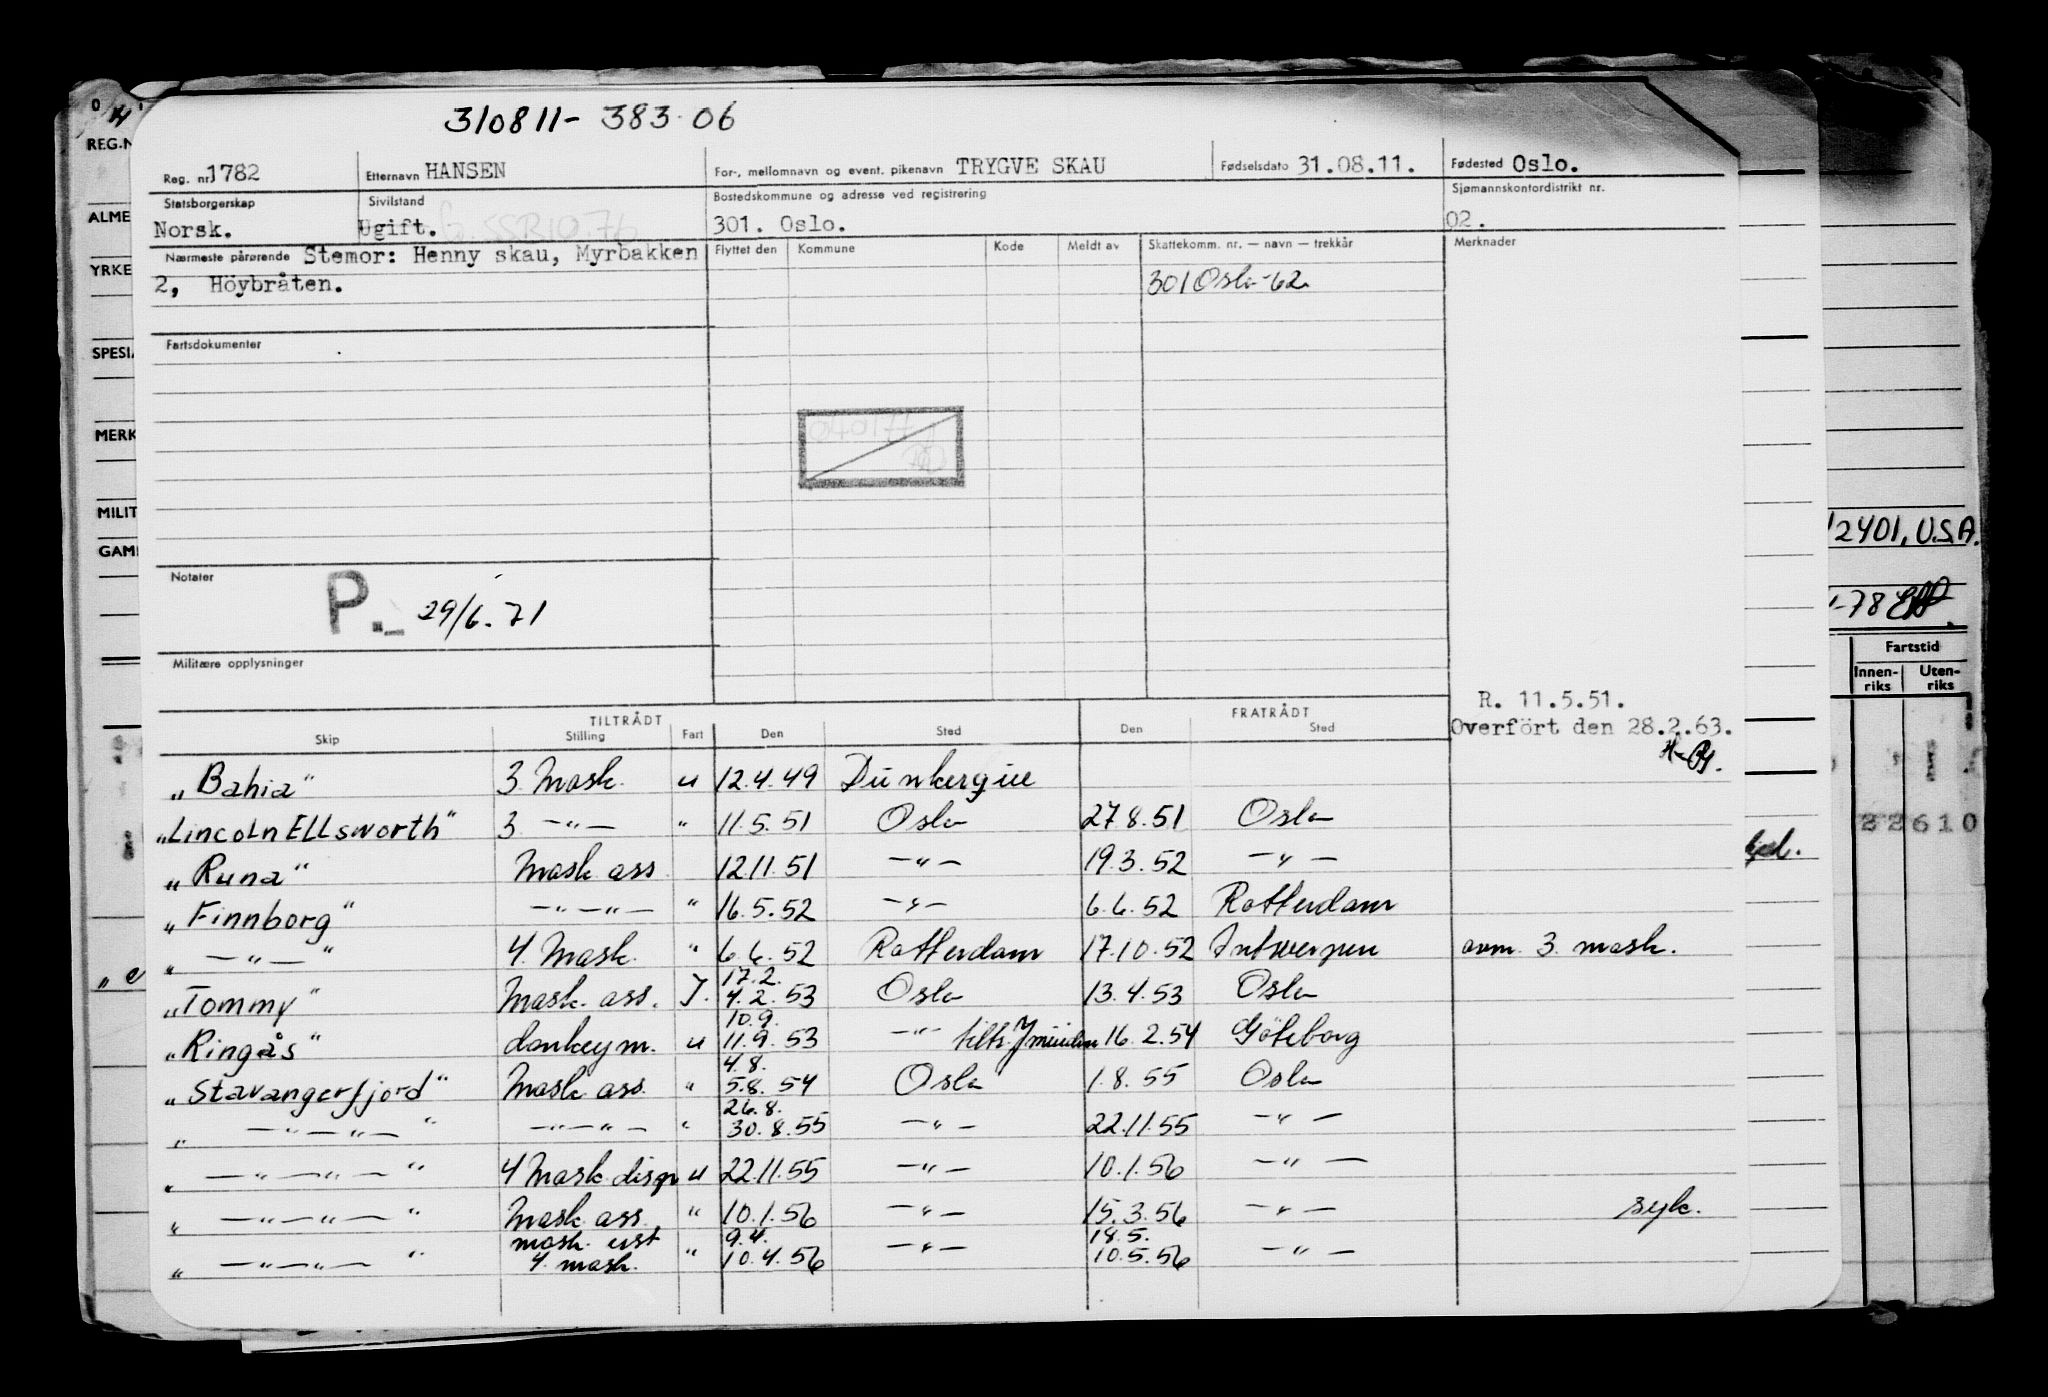 310811- 383.06
Reg. nr. 1782 Etternavn HANSEN For-, mellomnavn og event. pikenavn TRYGVE SKAU Fødselsdato 31.08.11. Fødested Oslo.
Statsborgerskap Sivilstand Bostedskommune og adresse ved registrering Sjømannskontordistrikt nr.
Norsk. Ugift. 301. Oslo. 02.
Nærmeste pårørende Stemor: Henny skau, Myrbakken Flyttet den Kommune Kode Meldt av Skattekomm. nr. — navn — trekkår Merknader
2, Höybråten. 301 Oslo-62
Fartsdokumenter
Notater
P. 29/6.71
Militære opplysninger
R. 11.5.51.
Overfört den 28.2.63.
TILTRÅDT FRATRÅDT
Skip Stilling Fart Den Sted Den Sted
„Bahia" 3. Mask. u 12.4.49 Dunkerque
„Lincoln Ellsworth" 3 —"— " 11.5.51 Oslo 27.8.51 Oslo
„Runa" Mask ass 12.11.51 —"— 19.3.52 —"—
„Finnborg" —"—"— " 16.5.52 —"— 6.6.52 Rotterdam
„ —"— " 4. Mask. " 6.6.52 Rotterdam 17.10.52 Antwerpen avm. 3. mask.
17.2.
„Tommy" Mask. ass. J. 4.2.53 Oslo 13.4.53 Oslo
10.9.
„Ringås" donkeym. u 11.9.53 —"— tiltr. Jmuiden 16.2.54 Göteborg
4.8.
„Stavangerfjord" Mask ass. " 5.8.54 Oslo 1.8.55 Oslo
26.8.
„ —"—"— " —"—"— " 30.8.55 —"— 22.11.55 —"—
„ —"—"— " 4 Mask disp u 22.11.55 —"— 10.1.56 —"—
„ —"—"— " Mask ass. " 10.1.56 —"— 15.3.56 —"— syk.
mask. 9.4. 18.5.
„ —"—"— " 4. mask. " 10.4.56 —"— 10.5.56 —"—
REG.N
ALME
YRKE
SPESIA
MERK
MILIT
GAM
2401, U.S.A.
-78
Fartstid
Innen-
riks
Uten-
riks
22610